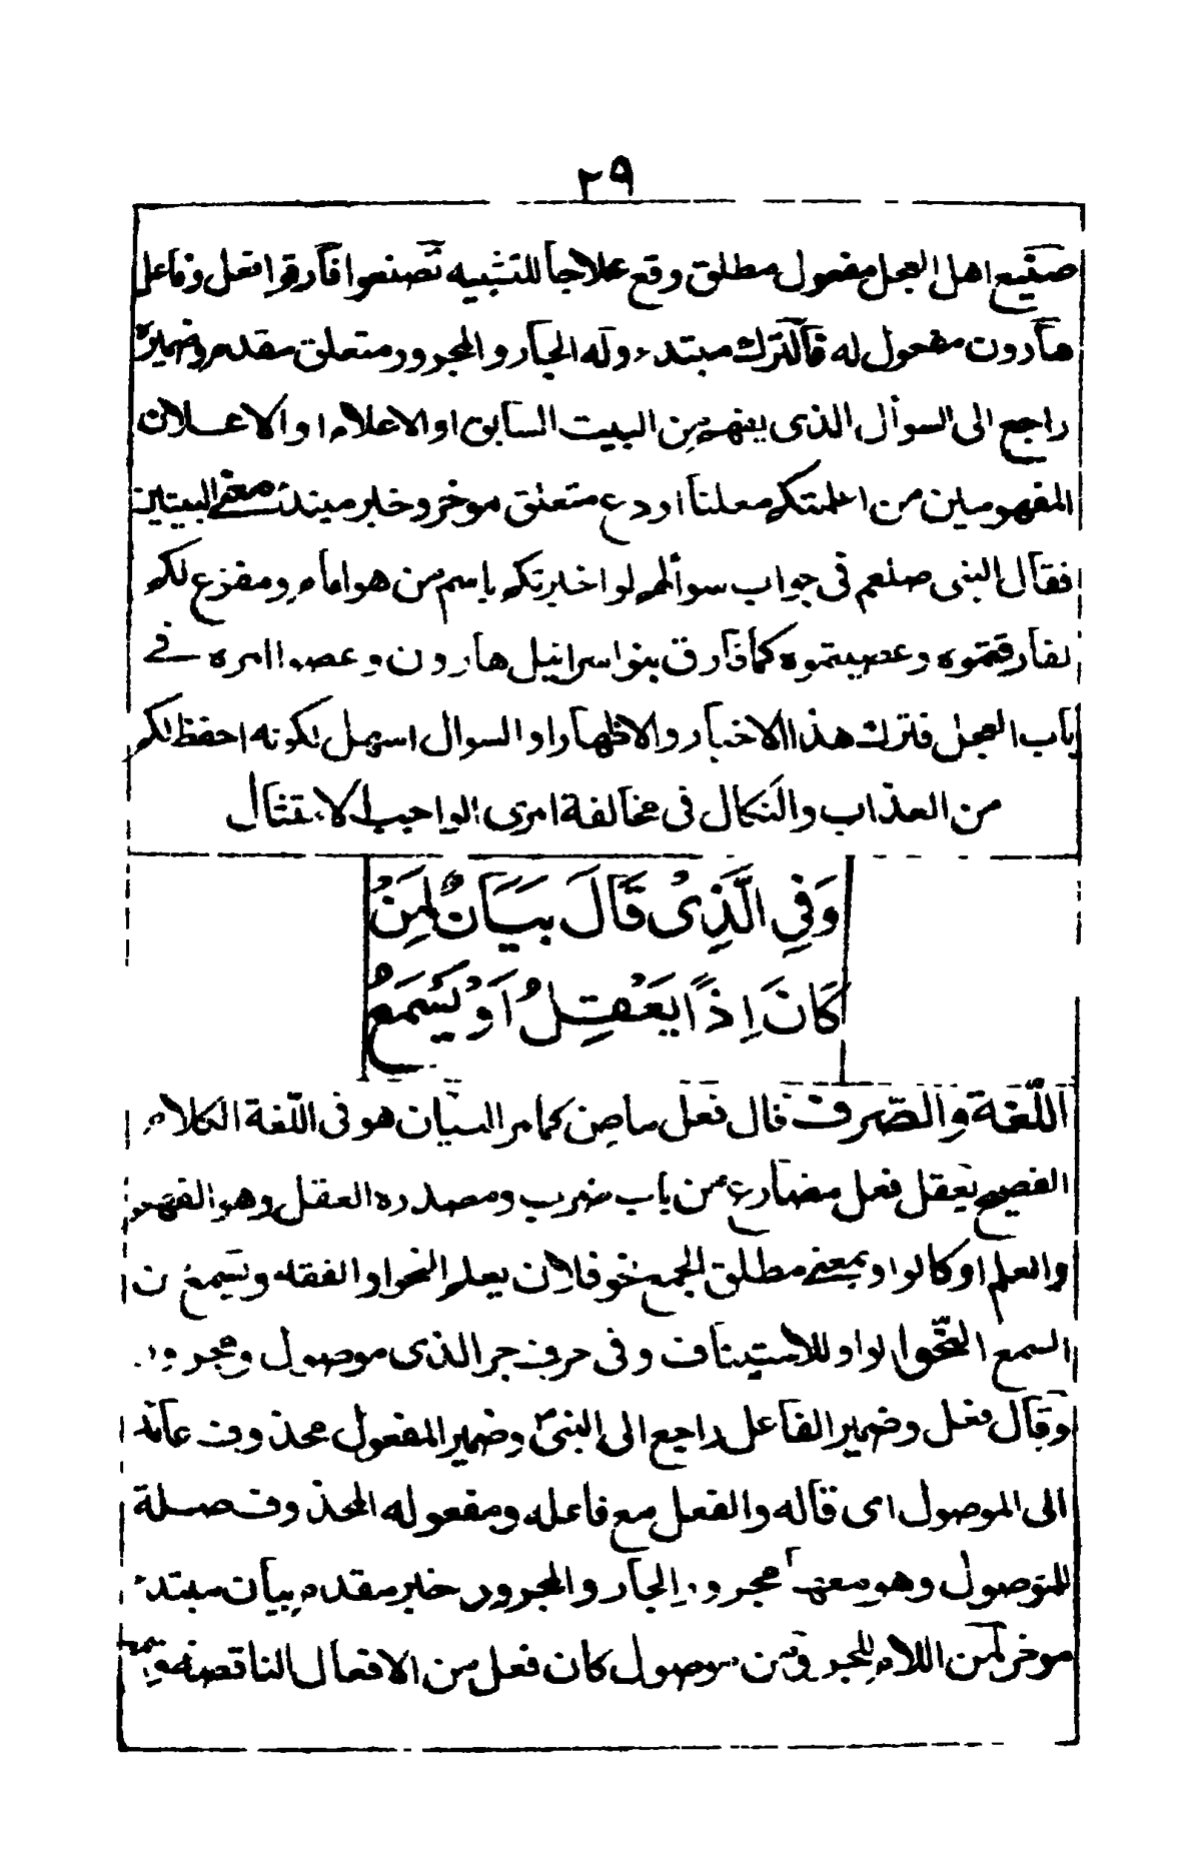 ٢٩
صنيع اهل العجل مفعول مطلق وقع علاجا للتشبيه تصنعوا فارقوا فعل وفاعل
هارون مفعول له فالترك مبتدء وله الجار والمجرور متعلق مقدم وضميره
راجع الى السوأل الذى يفهم من البيت السابق او الاعلام او الاعلان
المفهومين من اعلمتكم معلنا اودع متعلق موخر وخبر مبتدء معنے البيتين
فقال النبى صلعم فى جواب سوألهم لو اخبرتكم باسم من هو امام ومفزع لكم
لفارقتموه وعصيتموه كما فارق بنو اسرائيل هارون وعصوا امره فے
باب العجل فترك هذا الاخبار والاظهار او السوال اسهل لكونه احفظ لكم
من العذاب والنكال فى مخالفة امرى الواجب الامتثال
وَفِي الَّذِىْ قَالَ بَيَانٌ لِمَنْ
كَانَ اِذًا يَعْقِلُ اَوْ يَسْمَعُ
اللّغة والصّرف قال فعل ماض كما مر البيان هو فى اللّغة الكلام
الفصيح يعقل فعل مضارع من باب ضرب ومصدره العقل وهو الفهم
والعلم او كالواو بمعنے مطلق الجمع نحو فلان يعلم النحو او الفقه ويسمع من
السمع النّحو الواو للاستيناف وفى حرف جر الذى موصول ومجرور
وقال فعل وضمير الفاعل راجع الى النبىّ وضمير المفعول محذوف عائد
الى الموصول اى قاله والفعل مع فاعله ومفعوله المحذوف صلة
للموصول وهو معها مجرور الجار والمجرور خبر مقدم بيان مبتدء
موخر لمن اللام للجر ومن موصول كان فعل من الافعال الناقصة